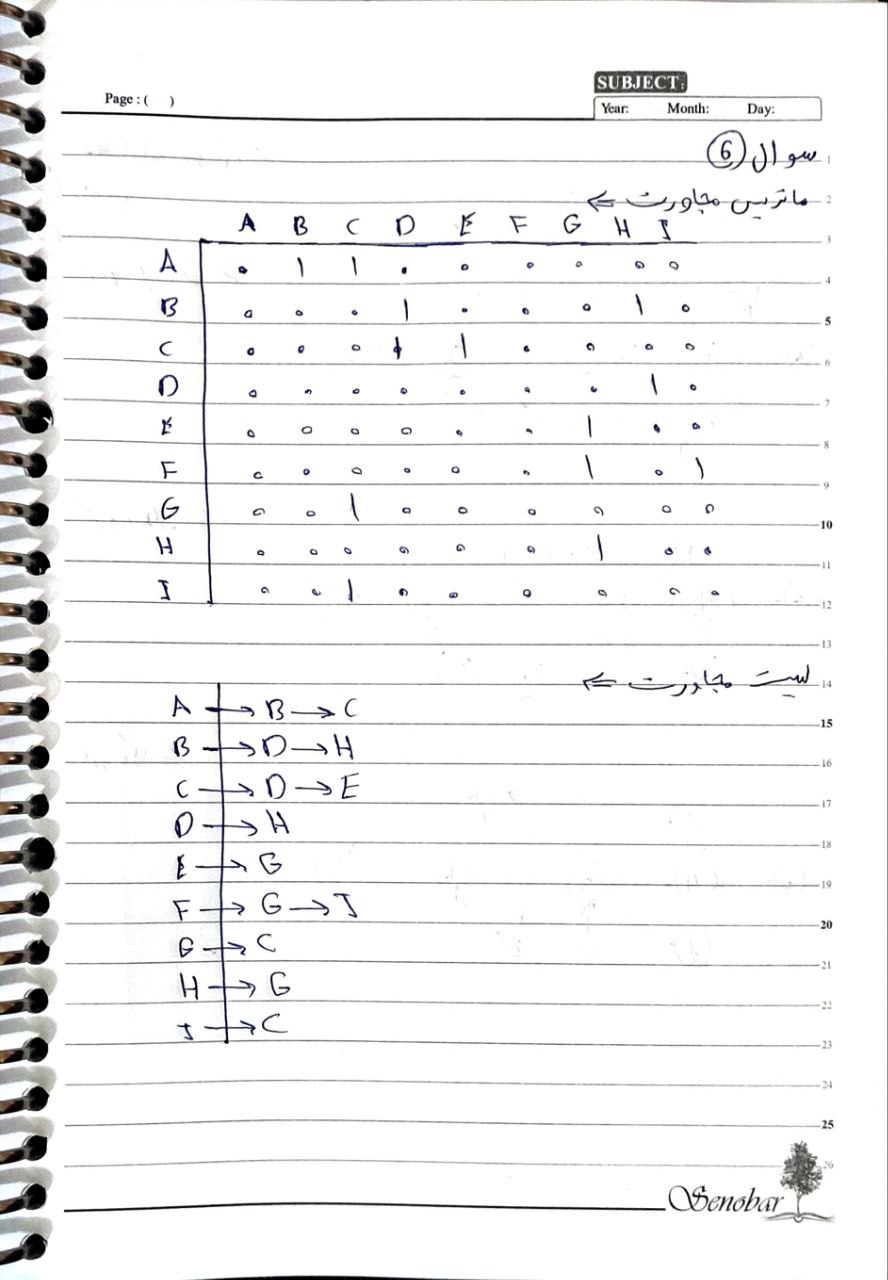 Page : (    )
SUBJECT:
Year: Month: Day:
سوال 6
ماتریس مجاورت ⇐
A B C D E F G H I
A 0 1 1 0 0 0 0 0 0
B 0 0 0 1 0 0 0 1 0
C 0 0 0 1 1 0 0 0 0
D 0 0 0 0 0 0 0 1 0
E 0 0 0 0 0 0 1 0 0
F 0 0 0 0 0 0 1 0 1
G 0 0 1 0 0 0 0 0 0
H 0 0 0 0 0 0 1 0 0
I 0 0 1 0 0 0 0 0 0
لیست مجاورت ⇐
A → B → C
B → D → H
C → D → E
D → H
E → G
F → G → I
G → C
H → G
I → C
1
2
3
4
5
6
7
8
9
10
11
12
13
14
15
16
17
18
19
20
21
22
23
24
25
26
Senobar